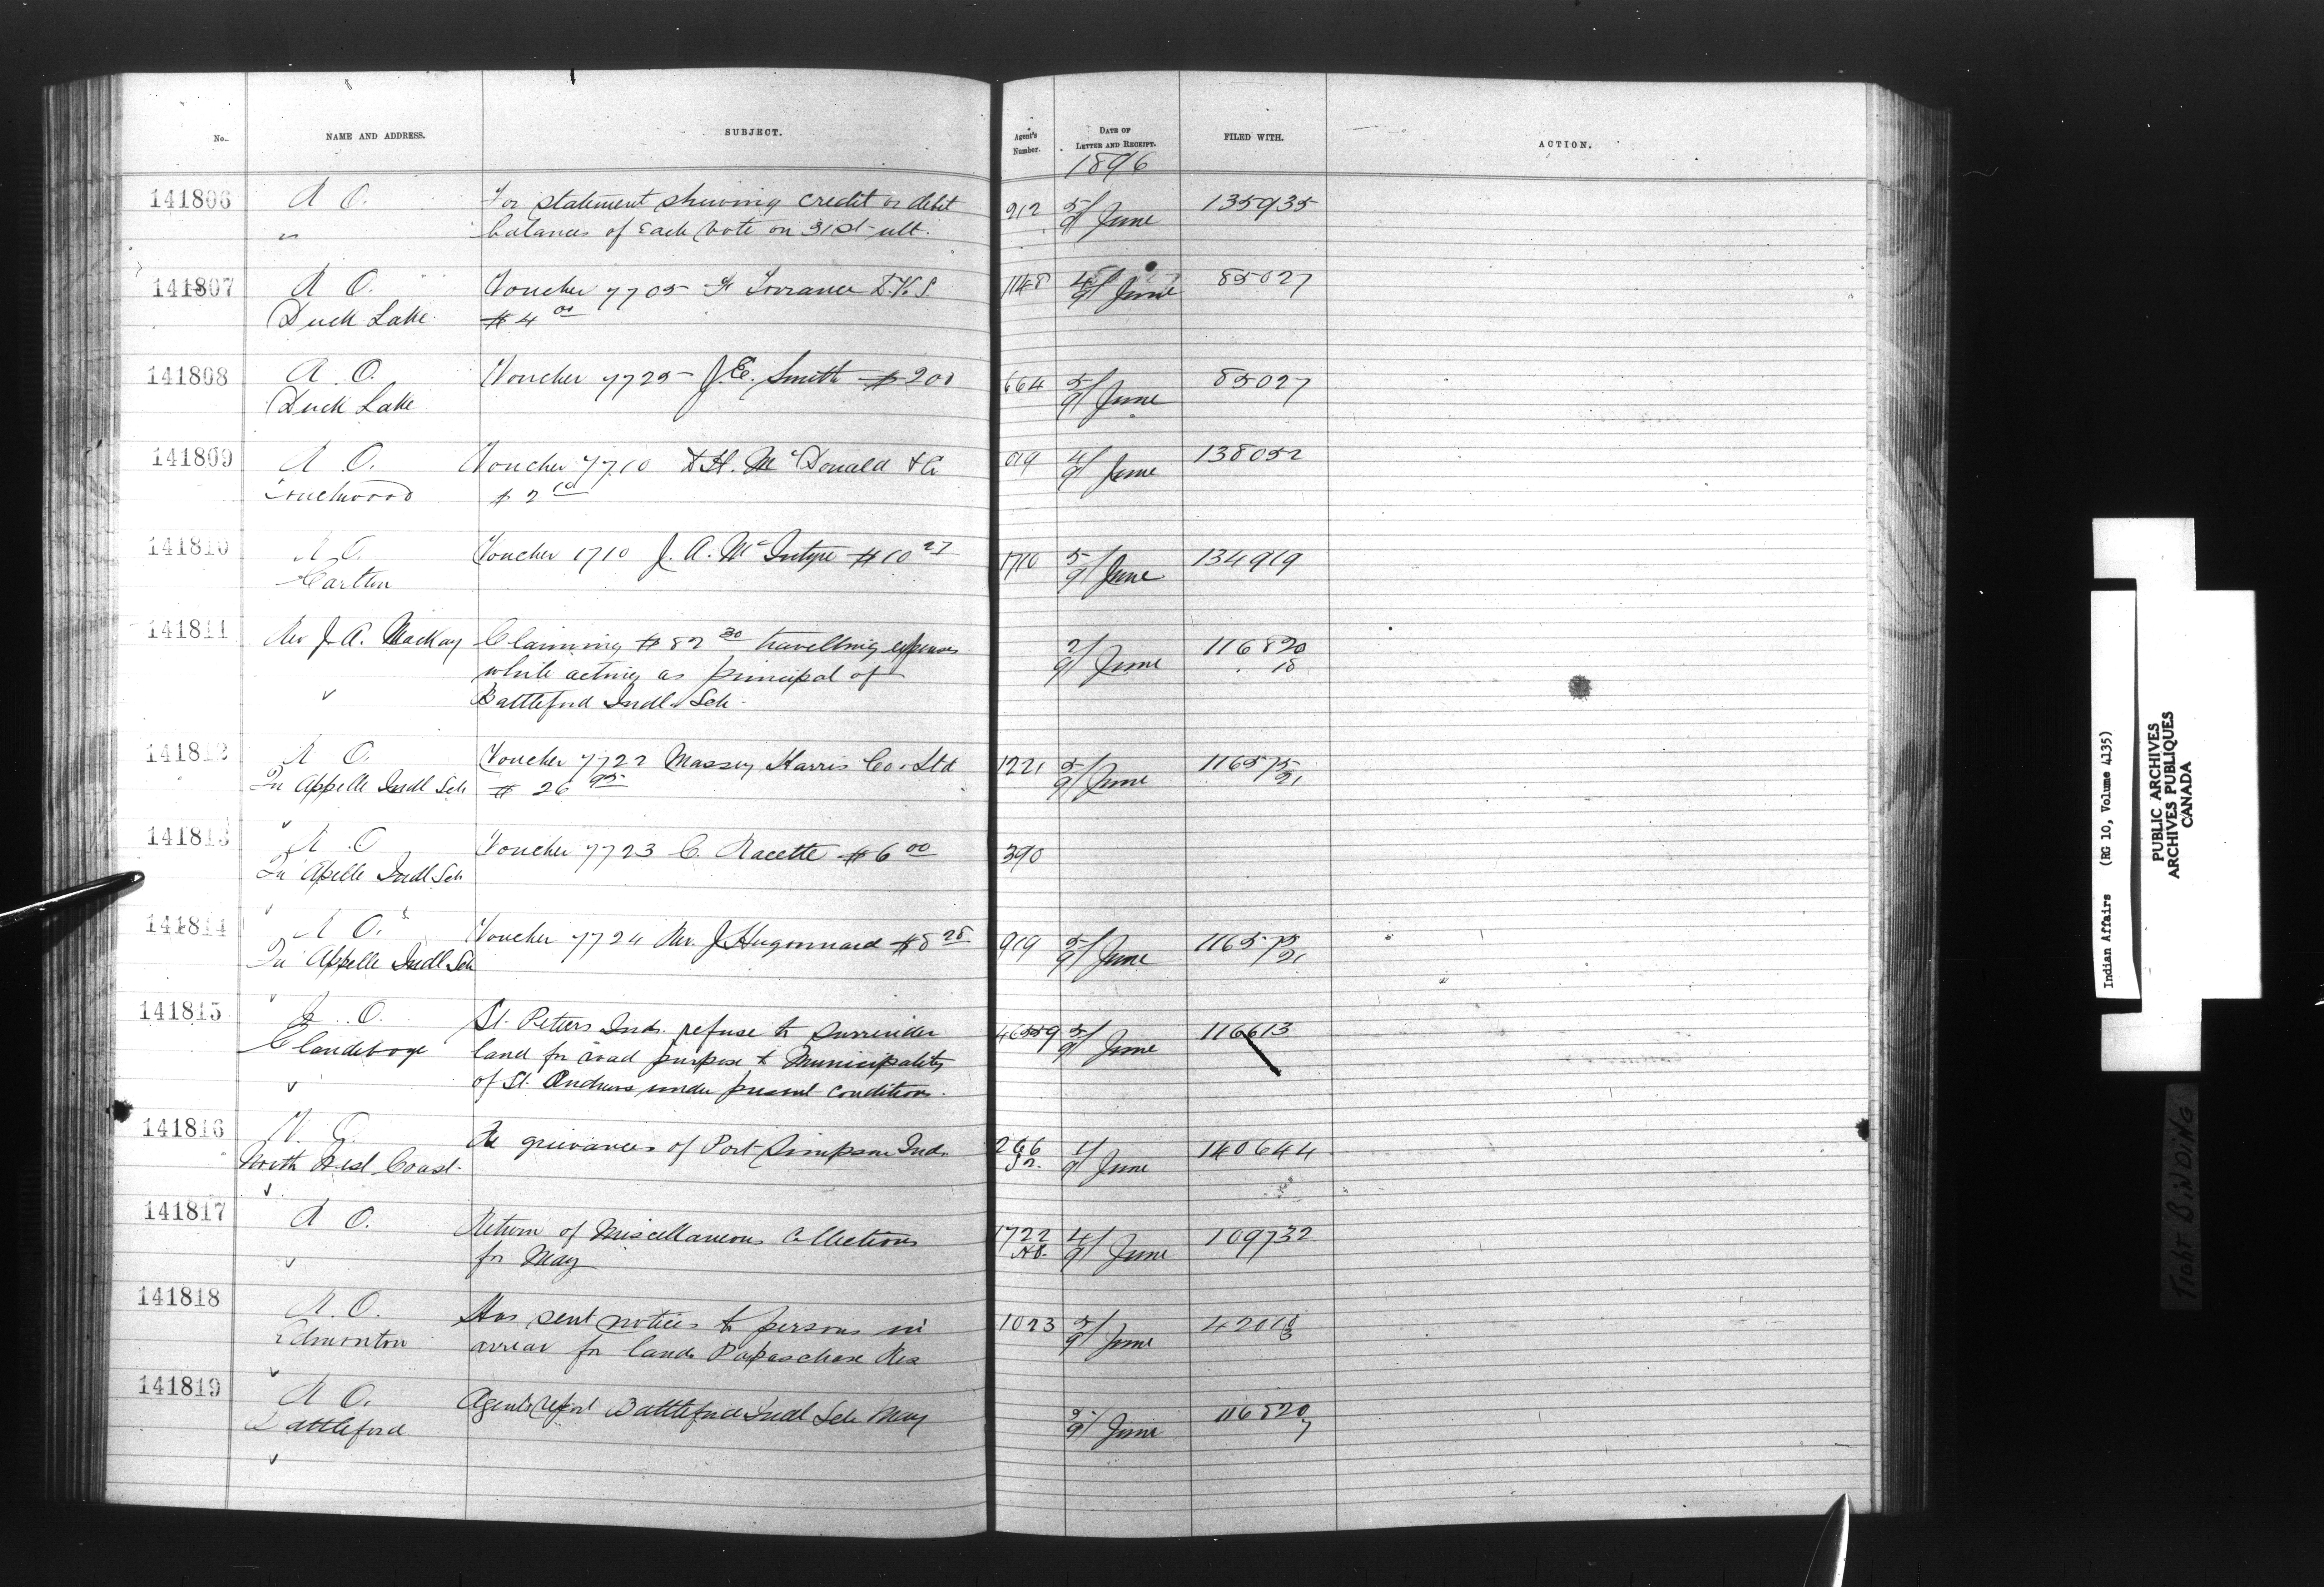 No. NAME AND ADDRESS. SUBJECT. Agent's Number. DATE OF LETTER AND RECEIPT. FILED WITH. ACTION.
1896
141806 R O. For statement shewing credit or debit 912 5/9 June 135935
" balances of each vote on 31st ult.
141807 R O. Voucher 7705 F Torrance D.V.S. 1148 4/9 June 85027
Duck Lake $4 00
141808 R O. Voucher 7725 J.E. Smith $200 664 5/9 June 85027
Duck Lake
141809 R O. Voucher 7710 D.H. McDonald & Co 919 4/9 June 138052
Touchwood $2
141810 R O. Voucher 1710 J. A. McIntyre $10 27 1710 5/9 June 134919
Carlton
141811 Rev J. A. Mackay Claiming $82 30 travelling expenses 2/9 June 116820
while acting as principal of 18
Battleford Indl. Sch.
141812 R O. Voucher 7722 Massey Harris Co. Ltd 1221 5/9 June 116575
Qu Appelle Indl Sch $26 95 21
141813 R O Voucher 7723 C. Racette $6 00 390
Qu Apelle Indl Sch
141814 R O. Voucher 7724 Rev. J Hugonnard $8 28 919 5/9 June 116575
Qu Appelle Indl Sch 21
141815 J. O. St. Peters Inds. refuse to surrender 5/9 June 116613
Clandeboye land for road purpose to Municipality
of St. Andrews under present conditions.
141816 V. O. Re grievances of Port Simpson Inds. 266 1/9 June 140644
North West Coast.
141817 R O. Return of Miscellaneous Collections 1722 4/9 June 109732
for May
141818 R. O. Has sent notices to persons in 1023 5/9 June
Edmonton arrear for lands Papaschase Res
141819 R O. Agents report Battleford Indl Sch May 2/9 June 116820
Battleford 7
Indian Affairs (RG 10, Volume 4135)
PUBLIC ARCHIVES
ARCHIVES PUBLIQUES
CANADA
TIGHT BINDING